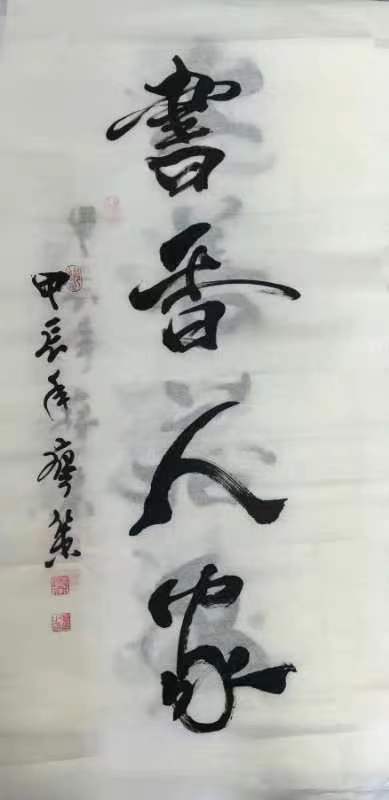 書香人家
甲辰年